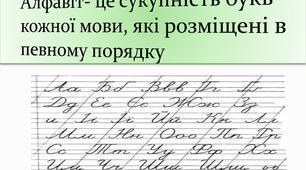 Алфавіт- це сукупність букв
кожної мови, які розміщені в
певному порядку
Аа Бб Ввв Гг Ґґ
Дд Ее Єє Жж Зз
и Іі Її Йй Кк Лл
Мм Нн Ооо Пп Рр
Сс Тт Уу Фф Хх